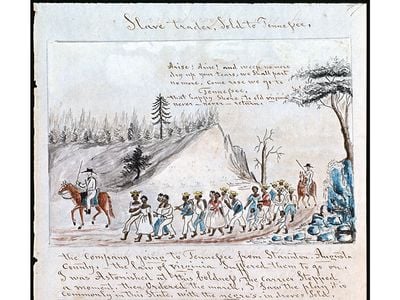 Slave trader, Sold to Tennessee,
Arise! Arise! and weep no more
dry up your tears, we Shall part
no more. Come rose we go to
Tennessee,
that happy Shore. to old virginia
never — never — return.
the Company going to Tennessee from Staunton, Augusta
County, — the law of virginia Suffered them to go on.
I was Astonished at this boldness, the carrier Stopped
a moment, then Ordered the march, I Saw the play it is
commonly in this State, with the negro's in droves Sold.